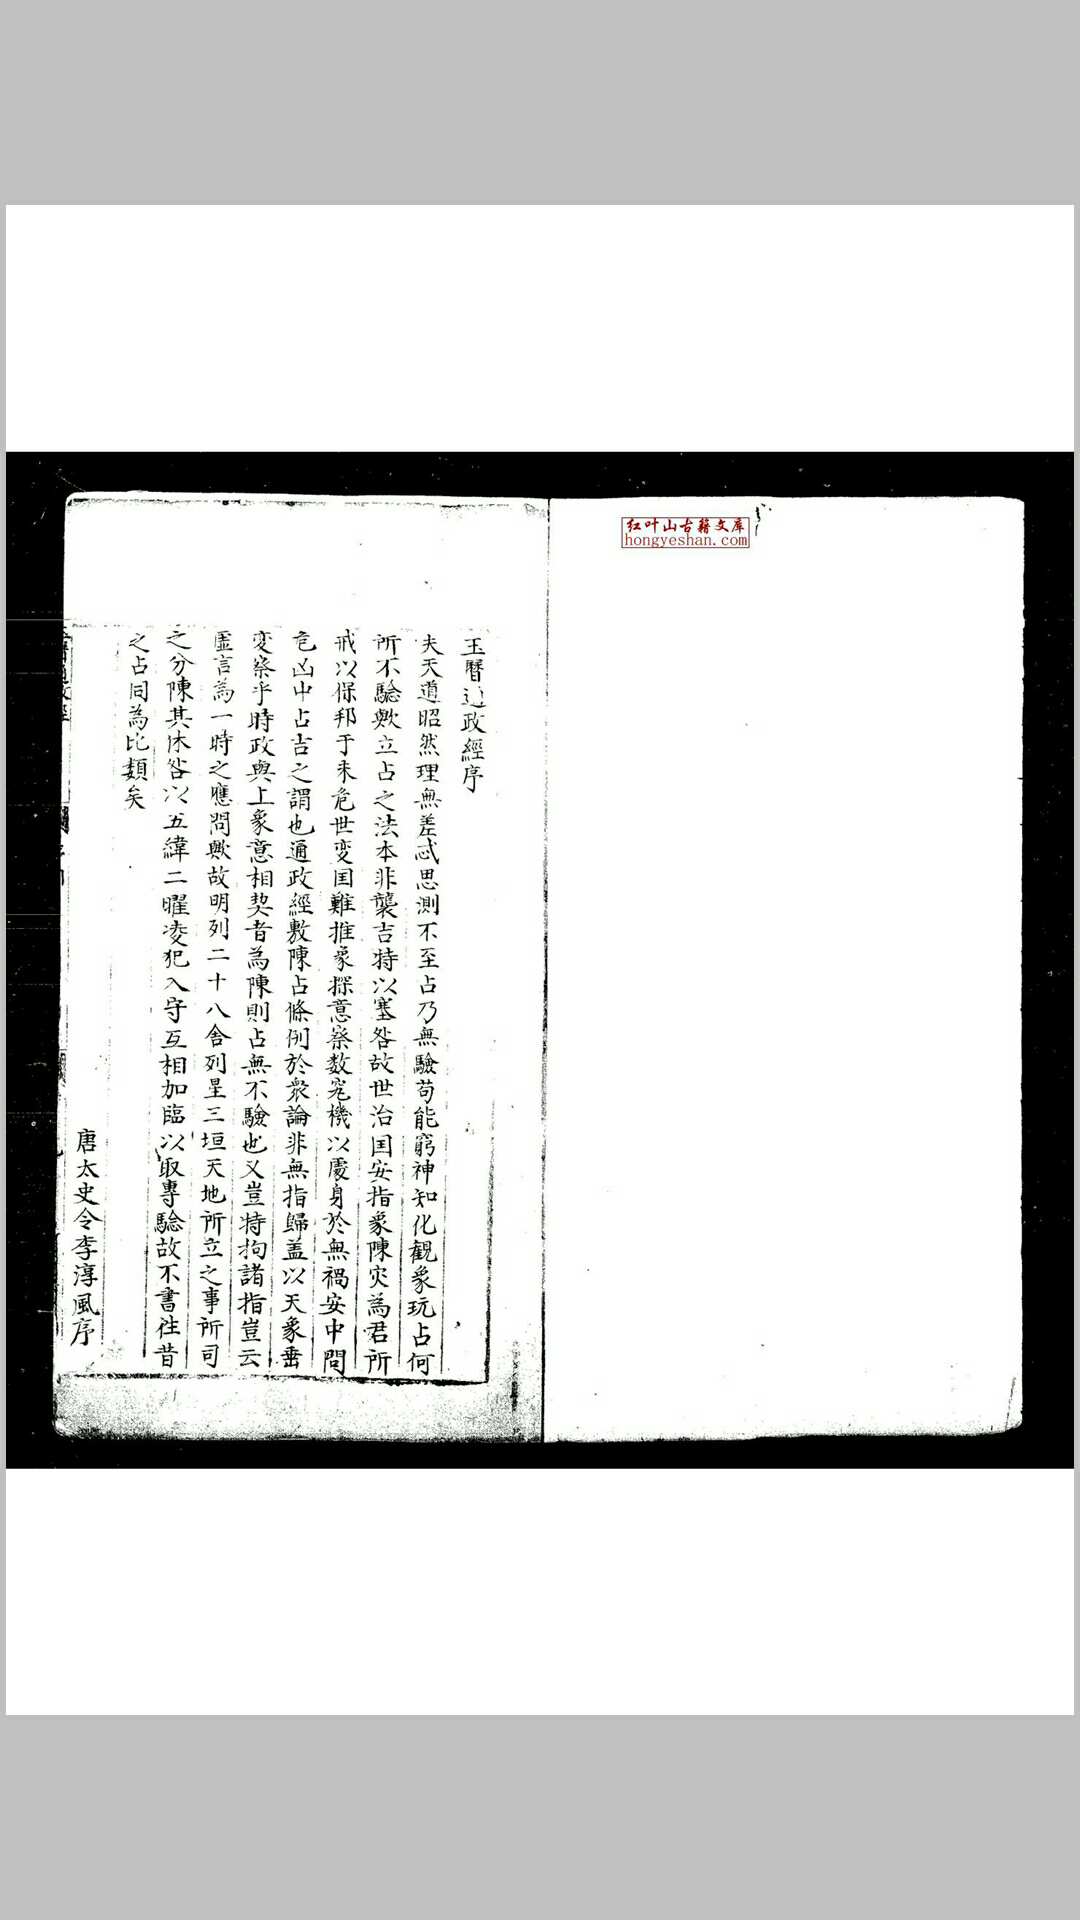 红叶山古籍文库
hongyeshan.com
玉曆通政經序
夫天道昭然理無差忒思測不至占乃無驗苟能窮神知化觀象玩占何
所不驗歟立占之法本非襲吉特以塞咎故世治囯安指象陳灾為君所
戒以保邦于未危世变囯難推象探意察数究機以處身於無禍安中問
危凶中占吉之謂也通政經敷陳占條例於衆論非無指歸盖以天象垂
变察乎時政與上象意相契者為陳則占無不驗也又豈特拘諸指豈云
虛言為一時之應問歟故明列二十八舍列星三垣天地所立之事所司
之分陳其休咎以五緯二曜凌犯入守互相加臨以取專驗故不書徃昔
之占同為比類矣
唐太史令李淳風序